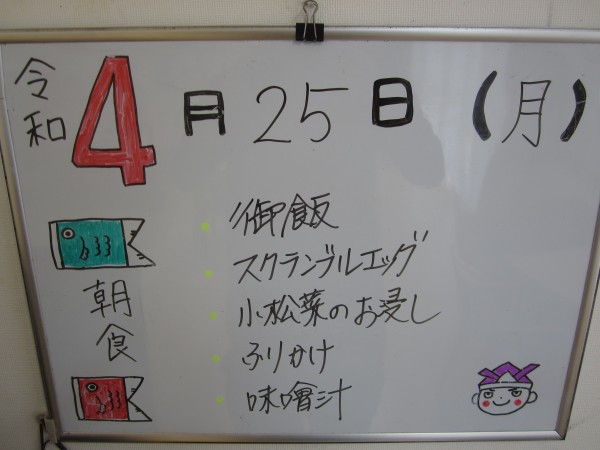 令和 4月25日(月)
朝食
・御飯
・スクランブルエッグ
・小松菜のお浸し
・ふりかけ
・味噌汁